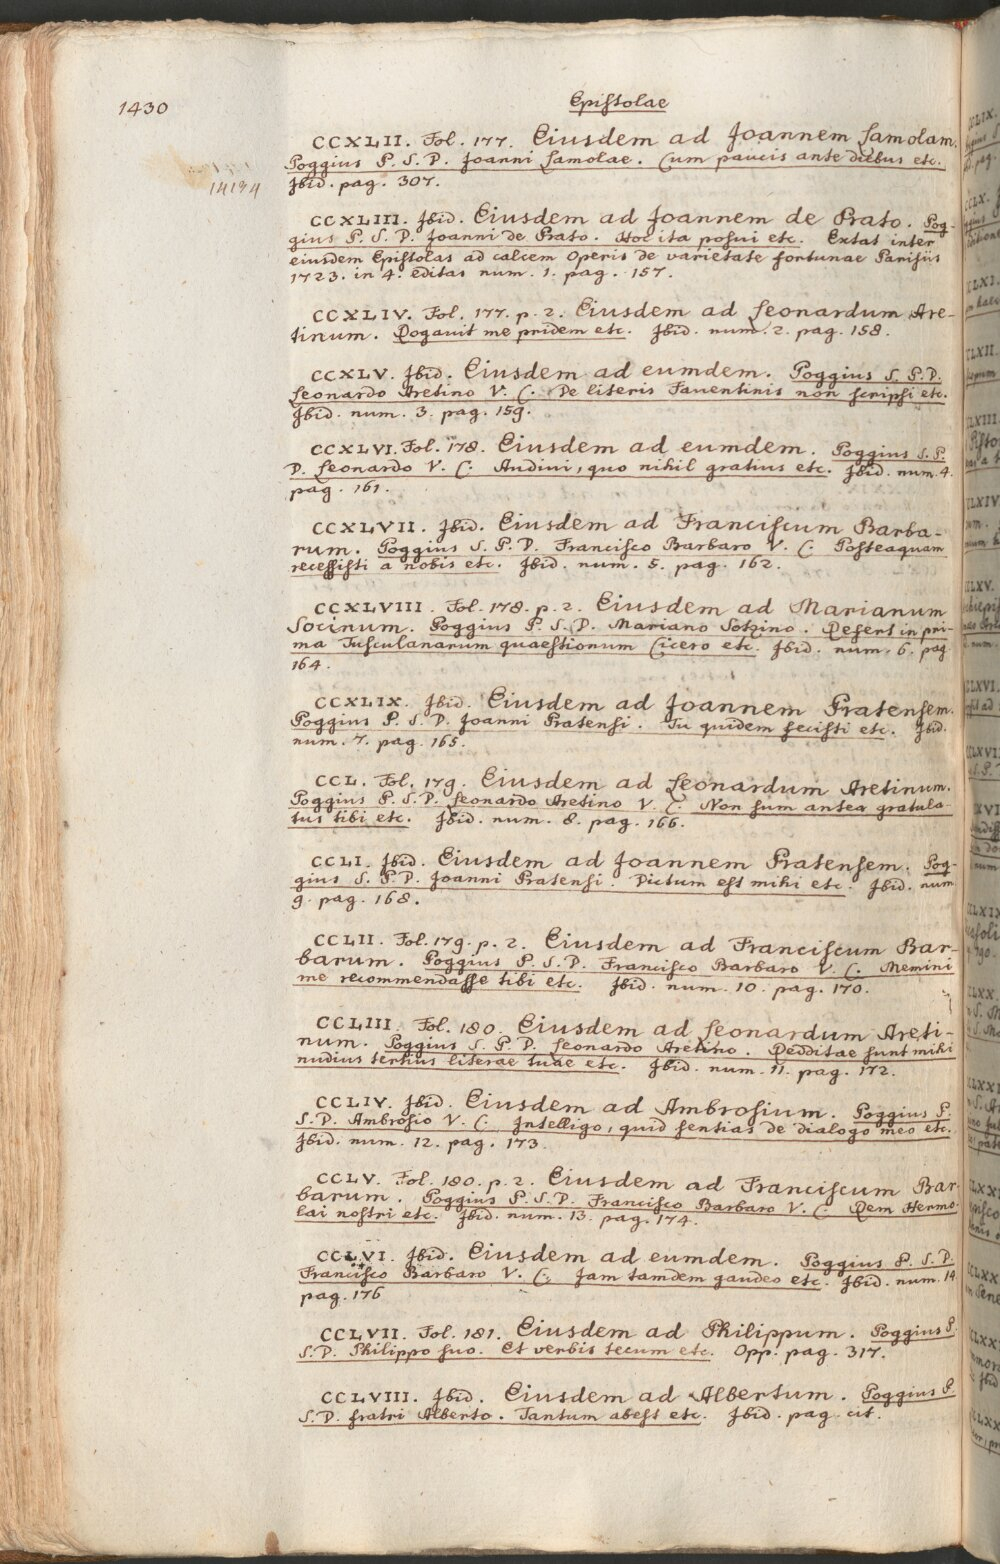 1430
Epistolae
14194
CCXLII. Fol. 177. Eiusdem ad Joannem Lamolam.
Poggius P. S. D. Joanni Lamolae. Cum paucis ante diebus etc.
Jbid. pag. 307.
CCXLIII. Jbid. Eiusdem ad Joannem de Prato. Pog-
gius P. S. D. Joanni de Prato. Hoc ita posui etc. Extat inter
eiusdem Epistolas ad calcem Operis de varietate fortunae Parisiis
1723. in 4. editas num. 1. pag. 157.
CCXLIV. Fol. 177. p. 2. Eiusdem ad Leonardum Are-
tinum. Rogavit me pridem etc. Jbid. num. 2. pag. 158.
CCXLV. Jbid. Eiusdem ad eumdem. Poggius S. P. D.
Leonardo Aretino V. C. De literis Faventinis non scripsi etc.
Jbid. num. 3. pag. 159.
CCXLVI. Fol. 178. Eiusdem ad eumdem. Poggius S. P.
D. Leonardo V. C. Audivi, quo nihil gratius etc. Jbid. num. 4.
pag. 161.
CCXLVII. Jbid. Eiusdem ad Franciscum Barba-
rum. Poggius S. P. D. Francisco Barbaro V. C. Posteaquam
recessisti a nobis etc. Jbid. num. 5. pag. 162.
CCXLVIII. Fol. 178. p. 2. Eiusdem ad Marianum
Socinum. Poggius P. S. D. Mariano Sotzino. Refert in pri-
ma Tusculanarum quaestionum Cicero etc. Jbid. num. 6. pag.
164.
CCXLIX. Jbid. Eiusdem ad Joannem Pratensem.
Poggius P. S. D. Joanni Pratensi. Tu quidem fecisti etc. Jbid.
num. 7. pag. 165.
CCL. Fol. 179. Eiusdem ad Leonardum Aretinum.
Poggius P. S. D. Leonardo Aretino V. C. Non sum antea gratula-
tus tibi etc. Jbid. num. 8. pag. 166.
CCLI. Jbid. Eiusdem ad Joannem Pratensem. Pog-
gius S. P. D. Joanni Pratensi. Dictum est mihi etc. Jbid. num.
9. pag. 168.
CCLII. Fol. 179. p. 2. Eiusdem ad Franciscum Bar-
barum. Poggius P. S. D. Francisco Barbaro V. C. Memini
me recommendasse tibi etc. Jbid. num. 10. pag. 170.
CCLIII. Fol. 180. Eiusdem ad Leonardum Areti-
num. Poggius S. P. D. Leonardo Aretino. Redditae sunt mihi
nudius tertius literae tuae etc. Jbid. num. 11. pag. 172.
CCLIV. Jbid. Eiusdem ad Ambrosium. Poggius P.
S. D. Ambrosio V. C. Intelligo, quid sentias de dialogo meo etc.
Jbid. num. 12. pag. 173.
CCLV. Fol. 180. p. 2. Eiusdem ad Franciscum Bar-
barum. Poggius P. S. D. Francisco Barbaro V. C. Rem Hermo-
lai nostri etc. Jbid. num. 13. pag. 174.
CCLVI. Jbid. Eiusdem ad eumdem. Poggius P. S. D.
Francisco Barbaro V. C. Jam tamdem gaudeo etc. Jbid. num. 14
pag. 176
CCLVII. Fol. 181. Eiusdem ad Philippum. Poggius P.
S. D. Philippo suo. Et verbis tecum etc. Opp. pag. 317.
CCLVIII. Jbid. Eiusdem ad Albertum. Poggius P.
S. D. fratri Alberto. Tantum abest etc. Jbid. pag. cit.